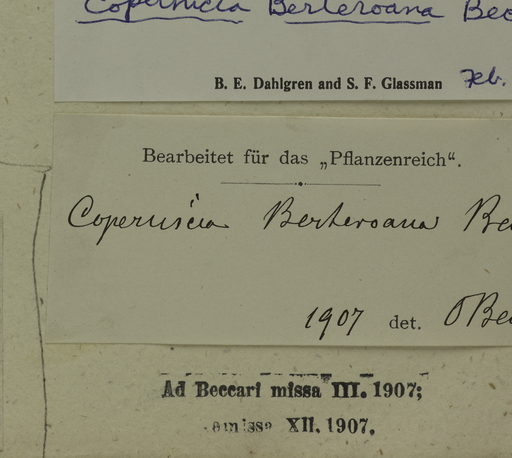 Copernicia Berteroana Bec
B. E. Dahlgren and S. F. Glassman Feb.
Bearbeitet für das „Pflanzenreich“.
Copernicia Berteroana Be
1907 det. OBec
Ad Beccari missa III. 1907;
emissa XII. 1907.